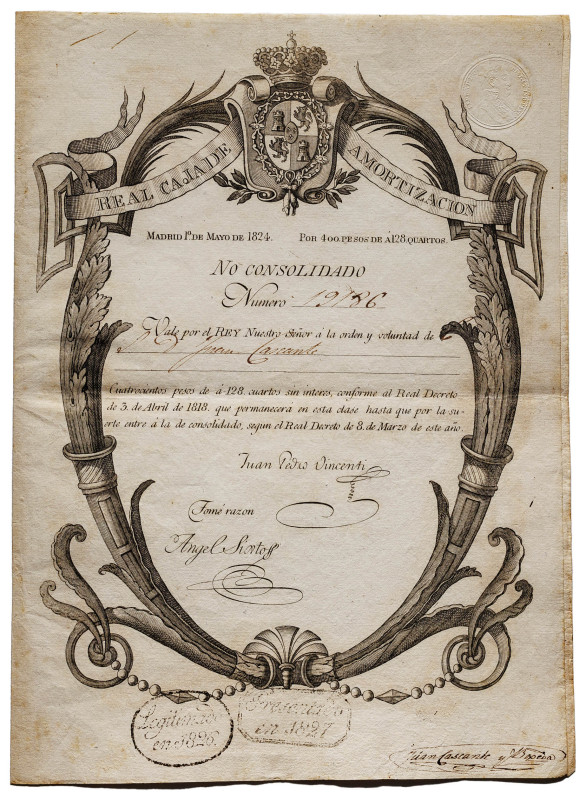 REAL CAJA DE AMORTIZACION
MADRID 1º DE MAYO DE 1824. POR 400. PESOS DE Á 128. QUARTOS.
NO CONSOLIDADO
Numero 19786
Vale por el REY Nuestro Señor á la orden y voluntad de
D. Juan Cascante
Cuatrocientos pesos de á 128. cuartos sin interes, conforme al Real Decreto
de 3. de Abril de 1818. que permanecerá en esta clase hasta que por la su-
erte entre á la de consolidado, segun el Real Decreto de 8. de Marzo de este año.
Juan Pedro Vincenti
Tomé razon
Angel
Legitimado
en 1825.
Presentado
en 1827
Juan Cascante y